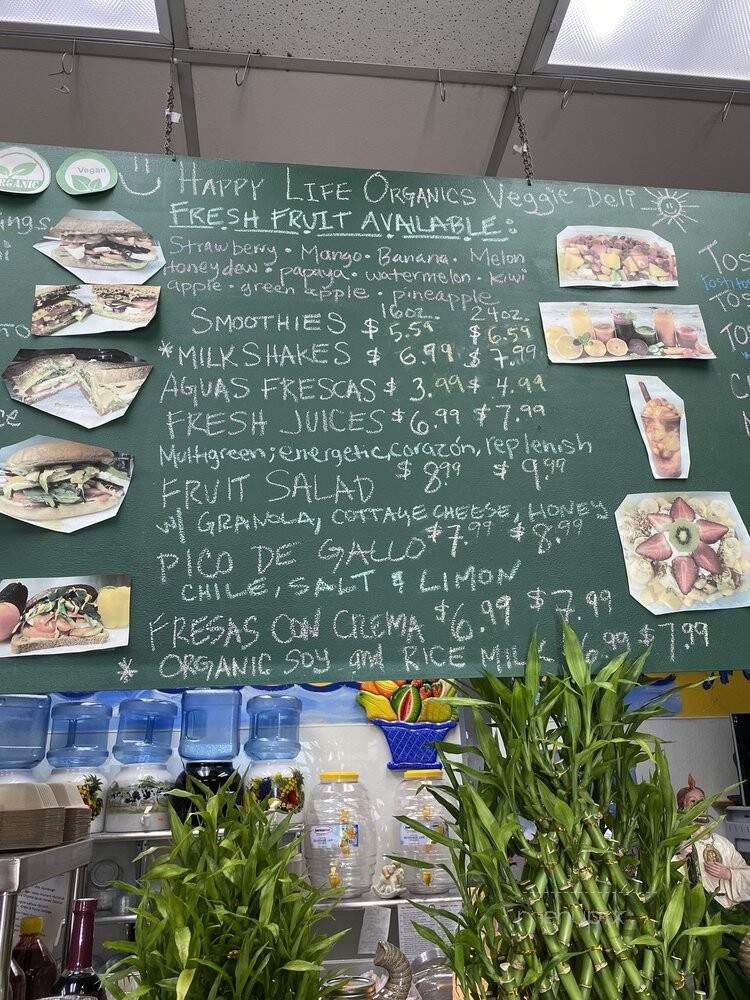 ORGANIC
Vegan
HAPPY LIFE ORGANICS Veggie Deli
FRESH FRUIT AVAILABLE:
Strawberry · Mango · Banana · Melon
Honeydew · papaya · watermelon · Kiwi
apple · green apple · pineapple
16oz. 24oz.
SMOOTHIES $5.59 $6.59
*MILKSHAKES $6.99 $7.99
AGUAS FRESCAS $3.99 $4.99
FRESH JUICES $6.99 $7.99
Multigreen; energetic, corazón, replenish
FRUIT SALAD $8.99 $9.99
w/ GRANOLA, COTTAGE CHEESE, HONEY
PICO DE GALLO $7.99 $8.99
CHILE, SALT & LIMON
FRESAS CON CREMA $6.99 $7.99
* ORGANIC SOY and RICE MILK 6.99 $7.99